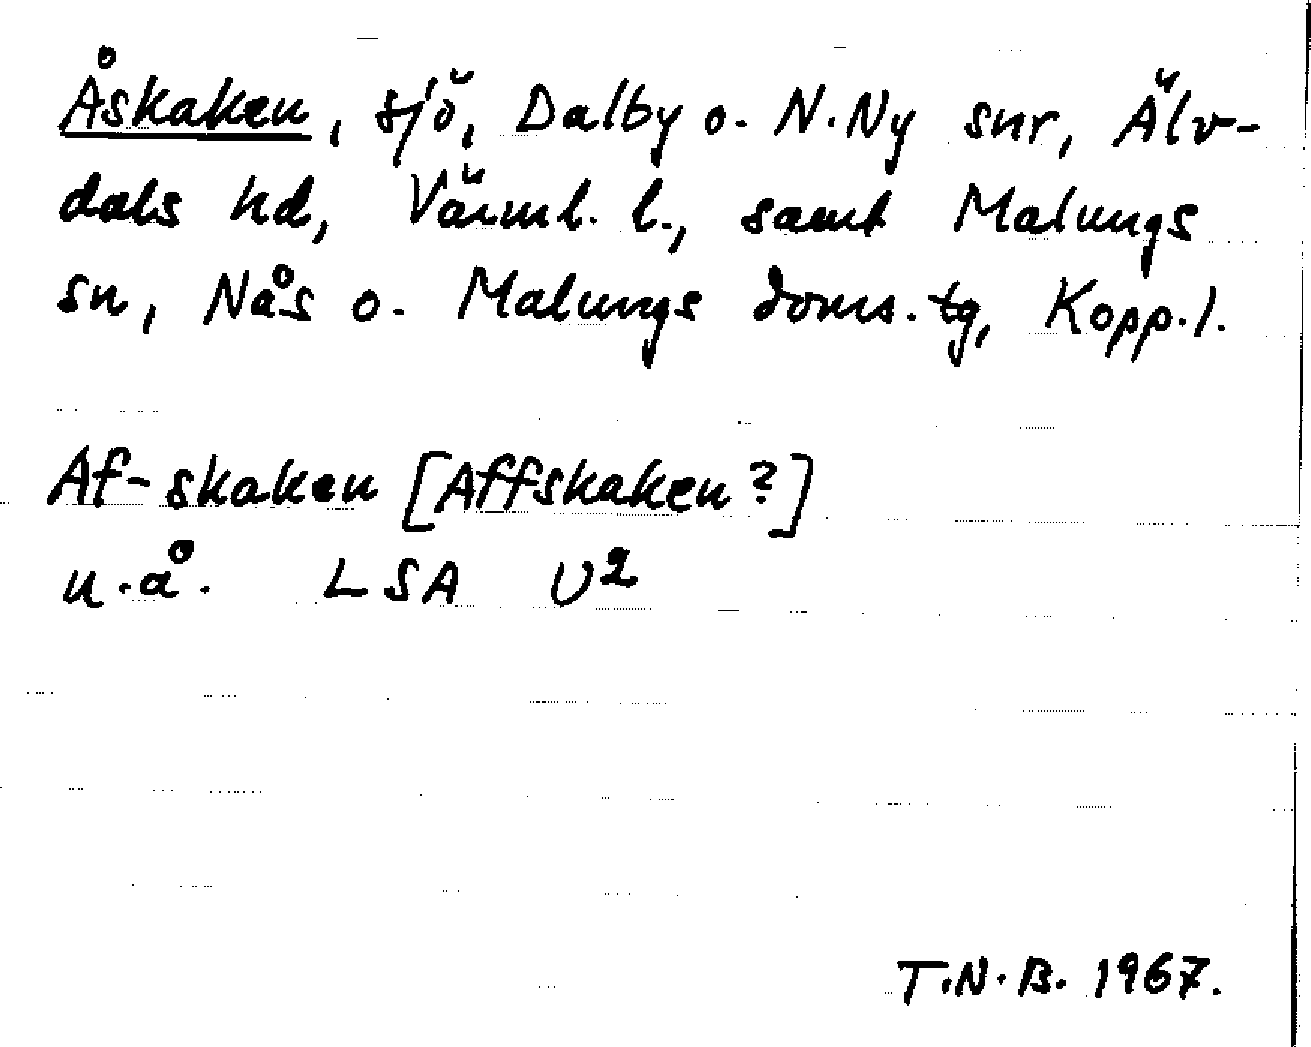 Åskaken, sjö, Dalby o. N.Ny snr, Älv-
dals hd, Värml. l., samt Malungs
sn, Nås o. Malungs doms.tg, Kopp.l.
Af-skaken [Affskaken?]
u.å. LSA U2
T.N.B. 1967.